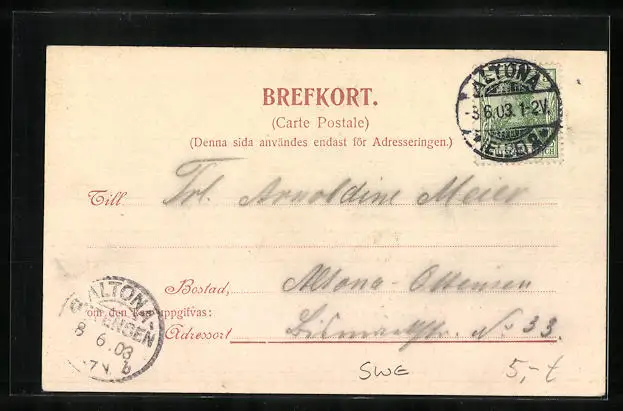 BREFKORT.
(Carte Postale)
(Denna sida användes endast för Adresseringen.)
ALTONA
8.6.03.1-2V.
Till Frl. Arnoldine Meier
Bostad, Altona-Ottensen
om den kan uppgifvas:
Adressort Bismarckstr. No 33.
ALTONA
OTTENSEN
8 6.03
7V. b
SWE 5,-